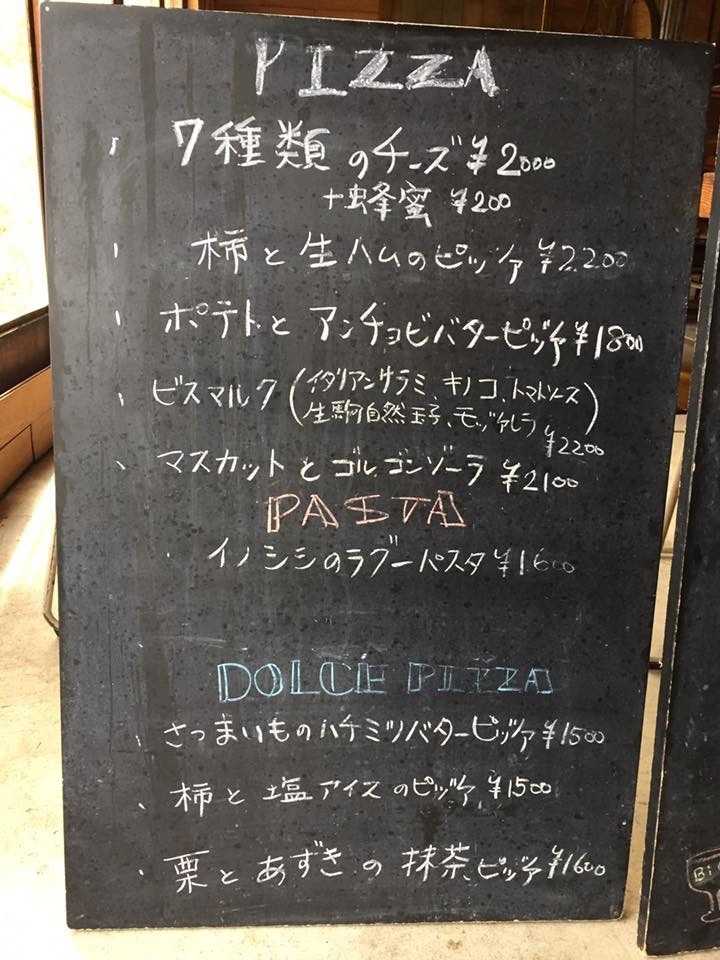 PIZZA
・ 7種類のチーズ ¥2000
+蜂蜜 ¥200
・ 柿と生ハムのピッツァ ¥2200
・ ポテトとアンチョビバターピッツァ ¥1800
・ ビスマルク (イタリアンサラミ、キノコ、トマトソース
生駒自然玉子、モッツァレラ)
¥2200
・ マスカットとゴルゴンゾーラ ¥2100
PASTA
・ イノシシのラグーパスタ ¥1600
DOLCE PIZZA
・ さつまいものハチミツバターピッツァ ¥1500
・ 柿と塩アイスのピッツァ ¥1500
・ 栗とあずきの抹茶ピッツァ ¥1600